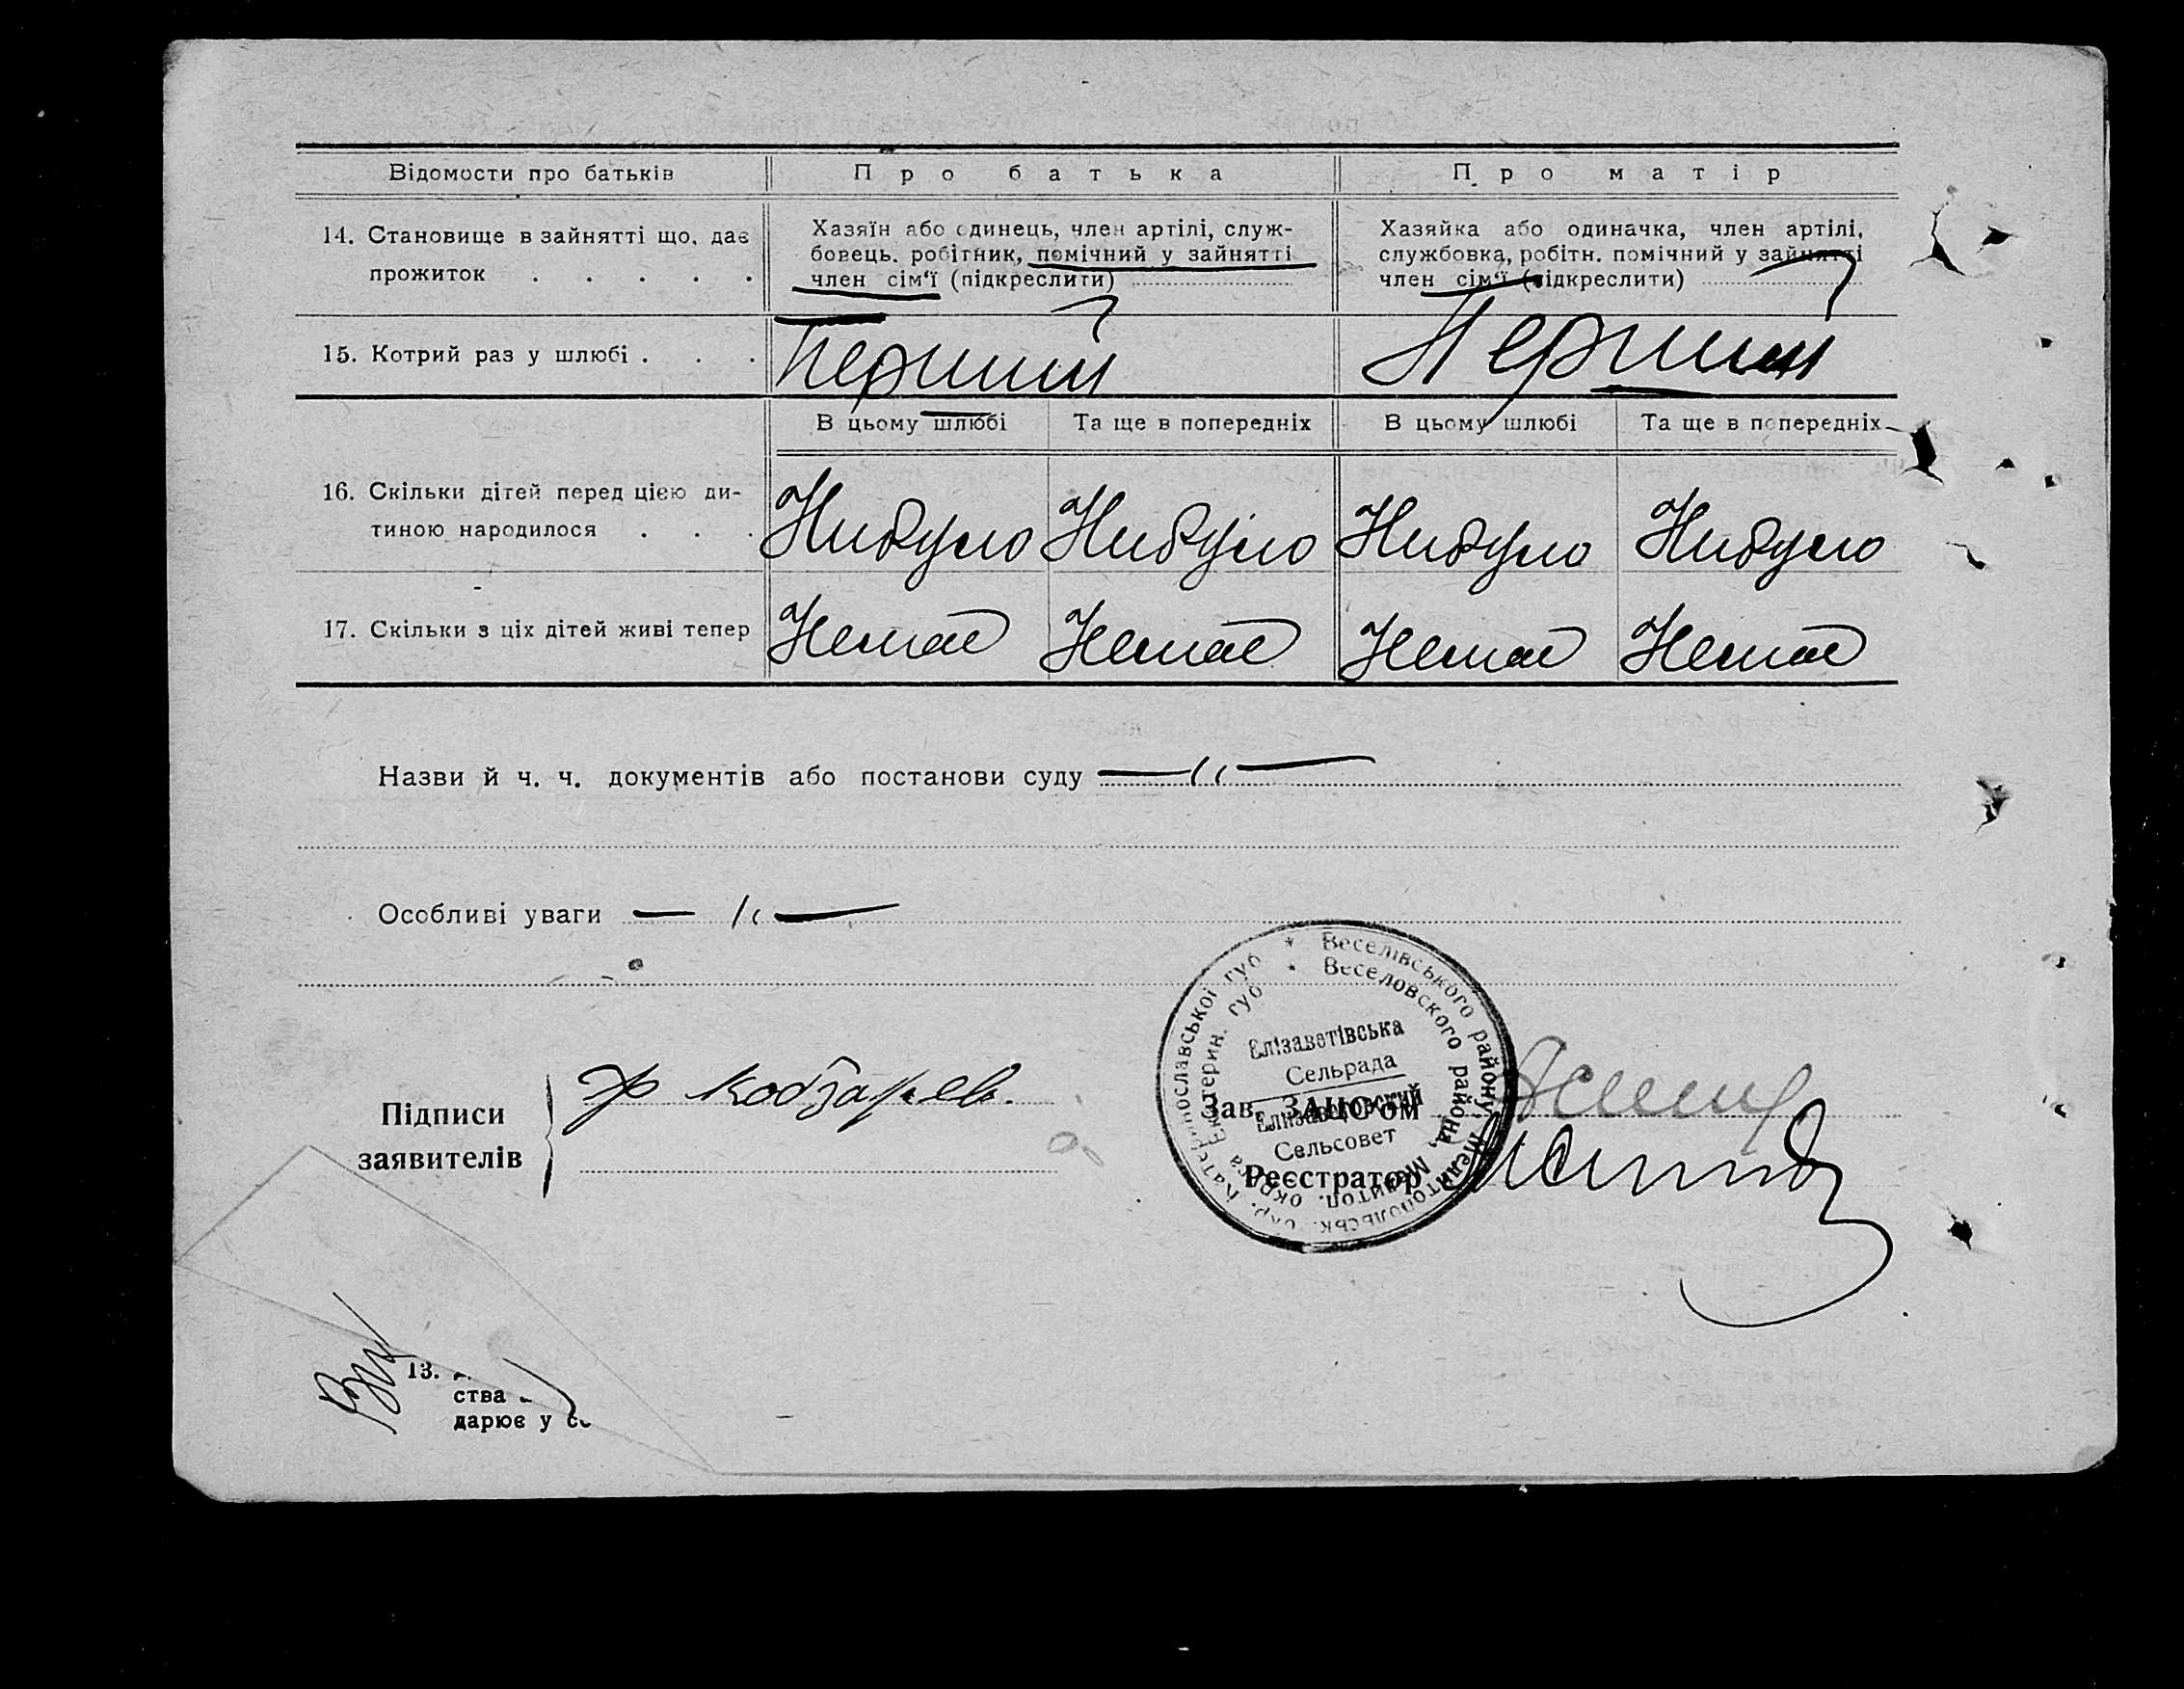 Відомости про батьків Про батька Про матір
14. Становище в зайнятті що, дає
прожиток . . . . .
Хазяїн або одинець, член артілі, служ-
бовець. робітник, помічний у зайнятті
член сім'ї (підкреслити)
Хазяйка або одиначка, член артілі,
службовка, робітн. помічний у зайнятті
член сім'ї (підкреслити)
15. Котрий раз у шлюбі . . . Перший Перший
В цьому шлюбі Та ще в попередніх В цьому шлюбі Та ще в попередніх
16. Скільки дітей перед цією ди-
тиною народилося . . . Нибуло Нибуло Нибуло Нибуло
17. Скільки з ціх дітей живі тепер Немає Немає Немає Немає
Назви й ч. ч. документів або постанови суду —〃—
Особливі уваги —〃—
Підписи
заявителів
Кобзарев.
* Веселівського району, Мелітопольськ. окр. Катеринославської губ
* Веселовского района, Мелитоп. окр. Екатерин. губ
Єлізаветівська
Сельрада
Елизаветовский
Сельсовет
Зав. ЗАЦС'ом
Реєстратор
13.
ства
дарює у